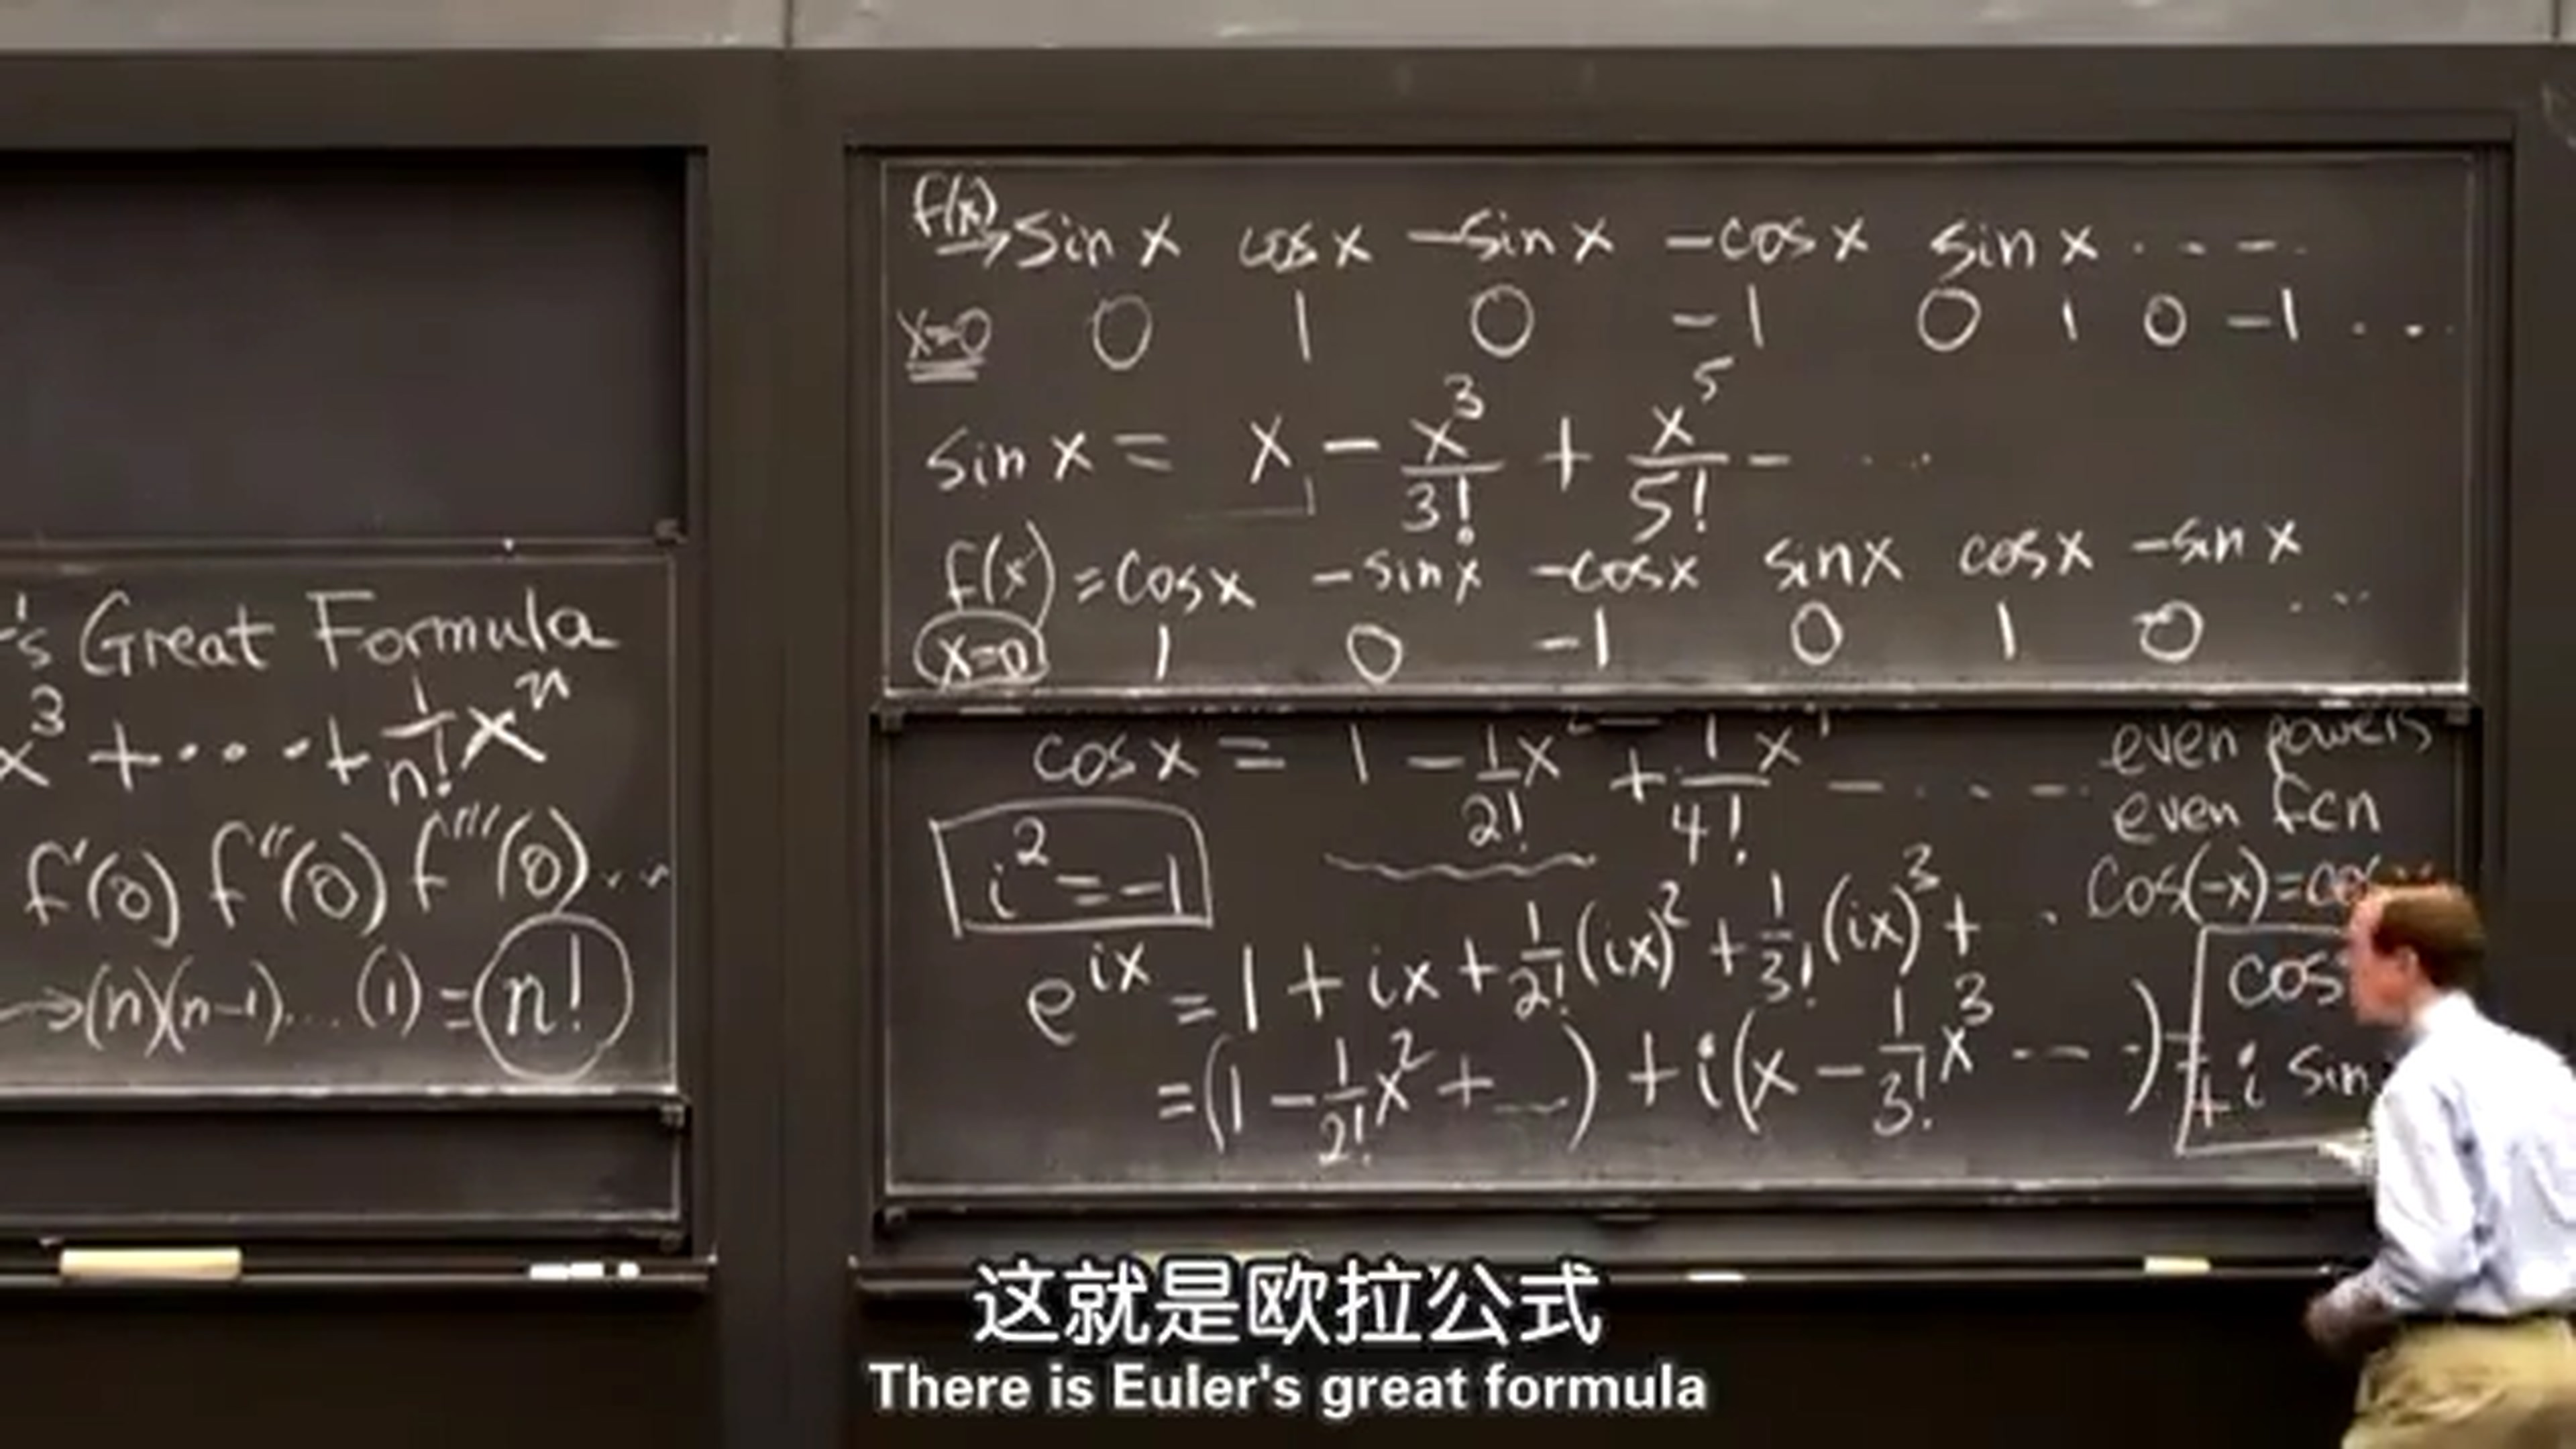 's Great Formula
x³ + ··· + 1/n! xⁿ
f'(0) f''(0) f'''(0) ...
→(n)(n-1)...(1) = n!
f(x)
→ sin x cos x -sin x -cos x sin x ....
x=0 0 1 0 -1 0 1 0 -1 ...
sin x = x - x³/3! + x⁵/5! - ...
f(x) = cos x -sin x -cos x sin x cos x -sin x
x=0 1 0 -1 0 1 0 ...
cos x = 1 - 1/2! x² + 1/4! x - ....
even powers
even fcn
cos(-x)=cos
i² = -1
e^{ix} = 1 + ix + 1/2! (ix)² + 1/3! (ix)³ + .
= (1 - 1/2! x² + ...) + i(x - 1/3! x³ ...) =
cos
+ i sin
这就是欧拉公式
There is Euler's great formula